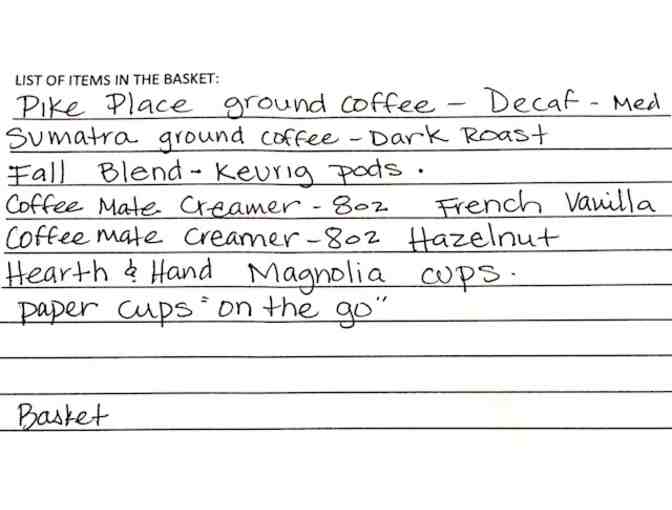 LIST OF ITEMS IN THE BASKET:
Pike Place ground coffee - Decaf - Med
Sumatra ground coffee - Dark Roast
Fall Blend - Keurig pods.
Coffee Mate Creamer - 8oz French Vanilla
Coffee mate creamer - 8oz Hazelnut
Hearth & Hand Magnolia cups.
paper cups "on the go"
Basket